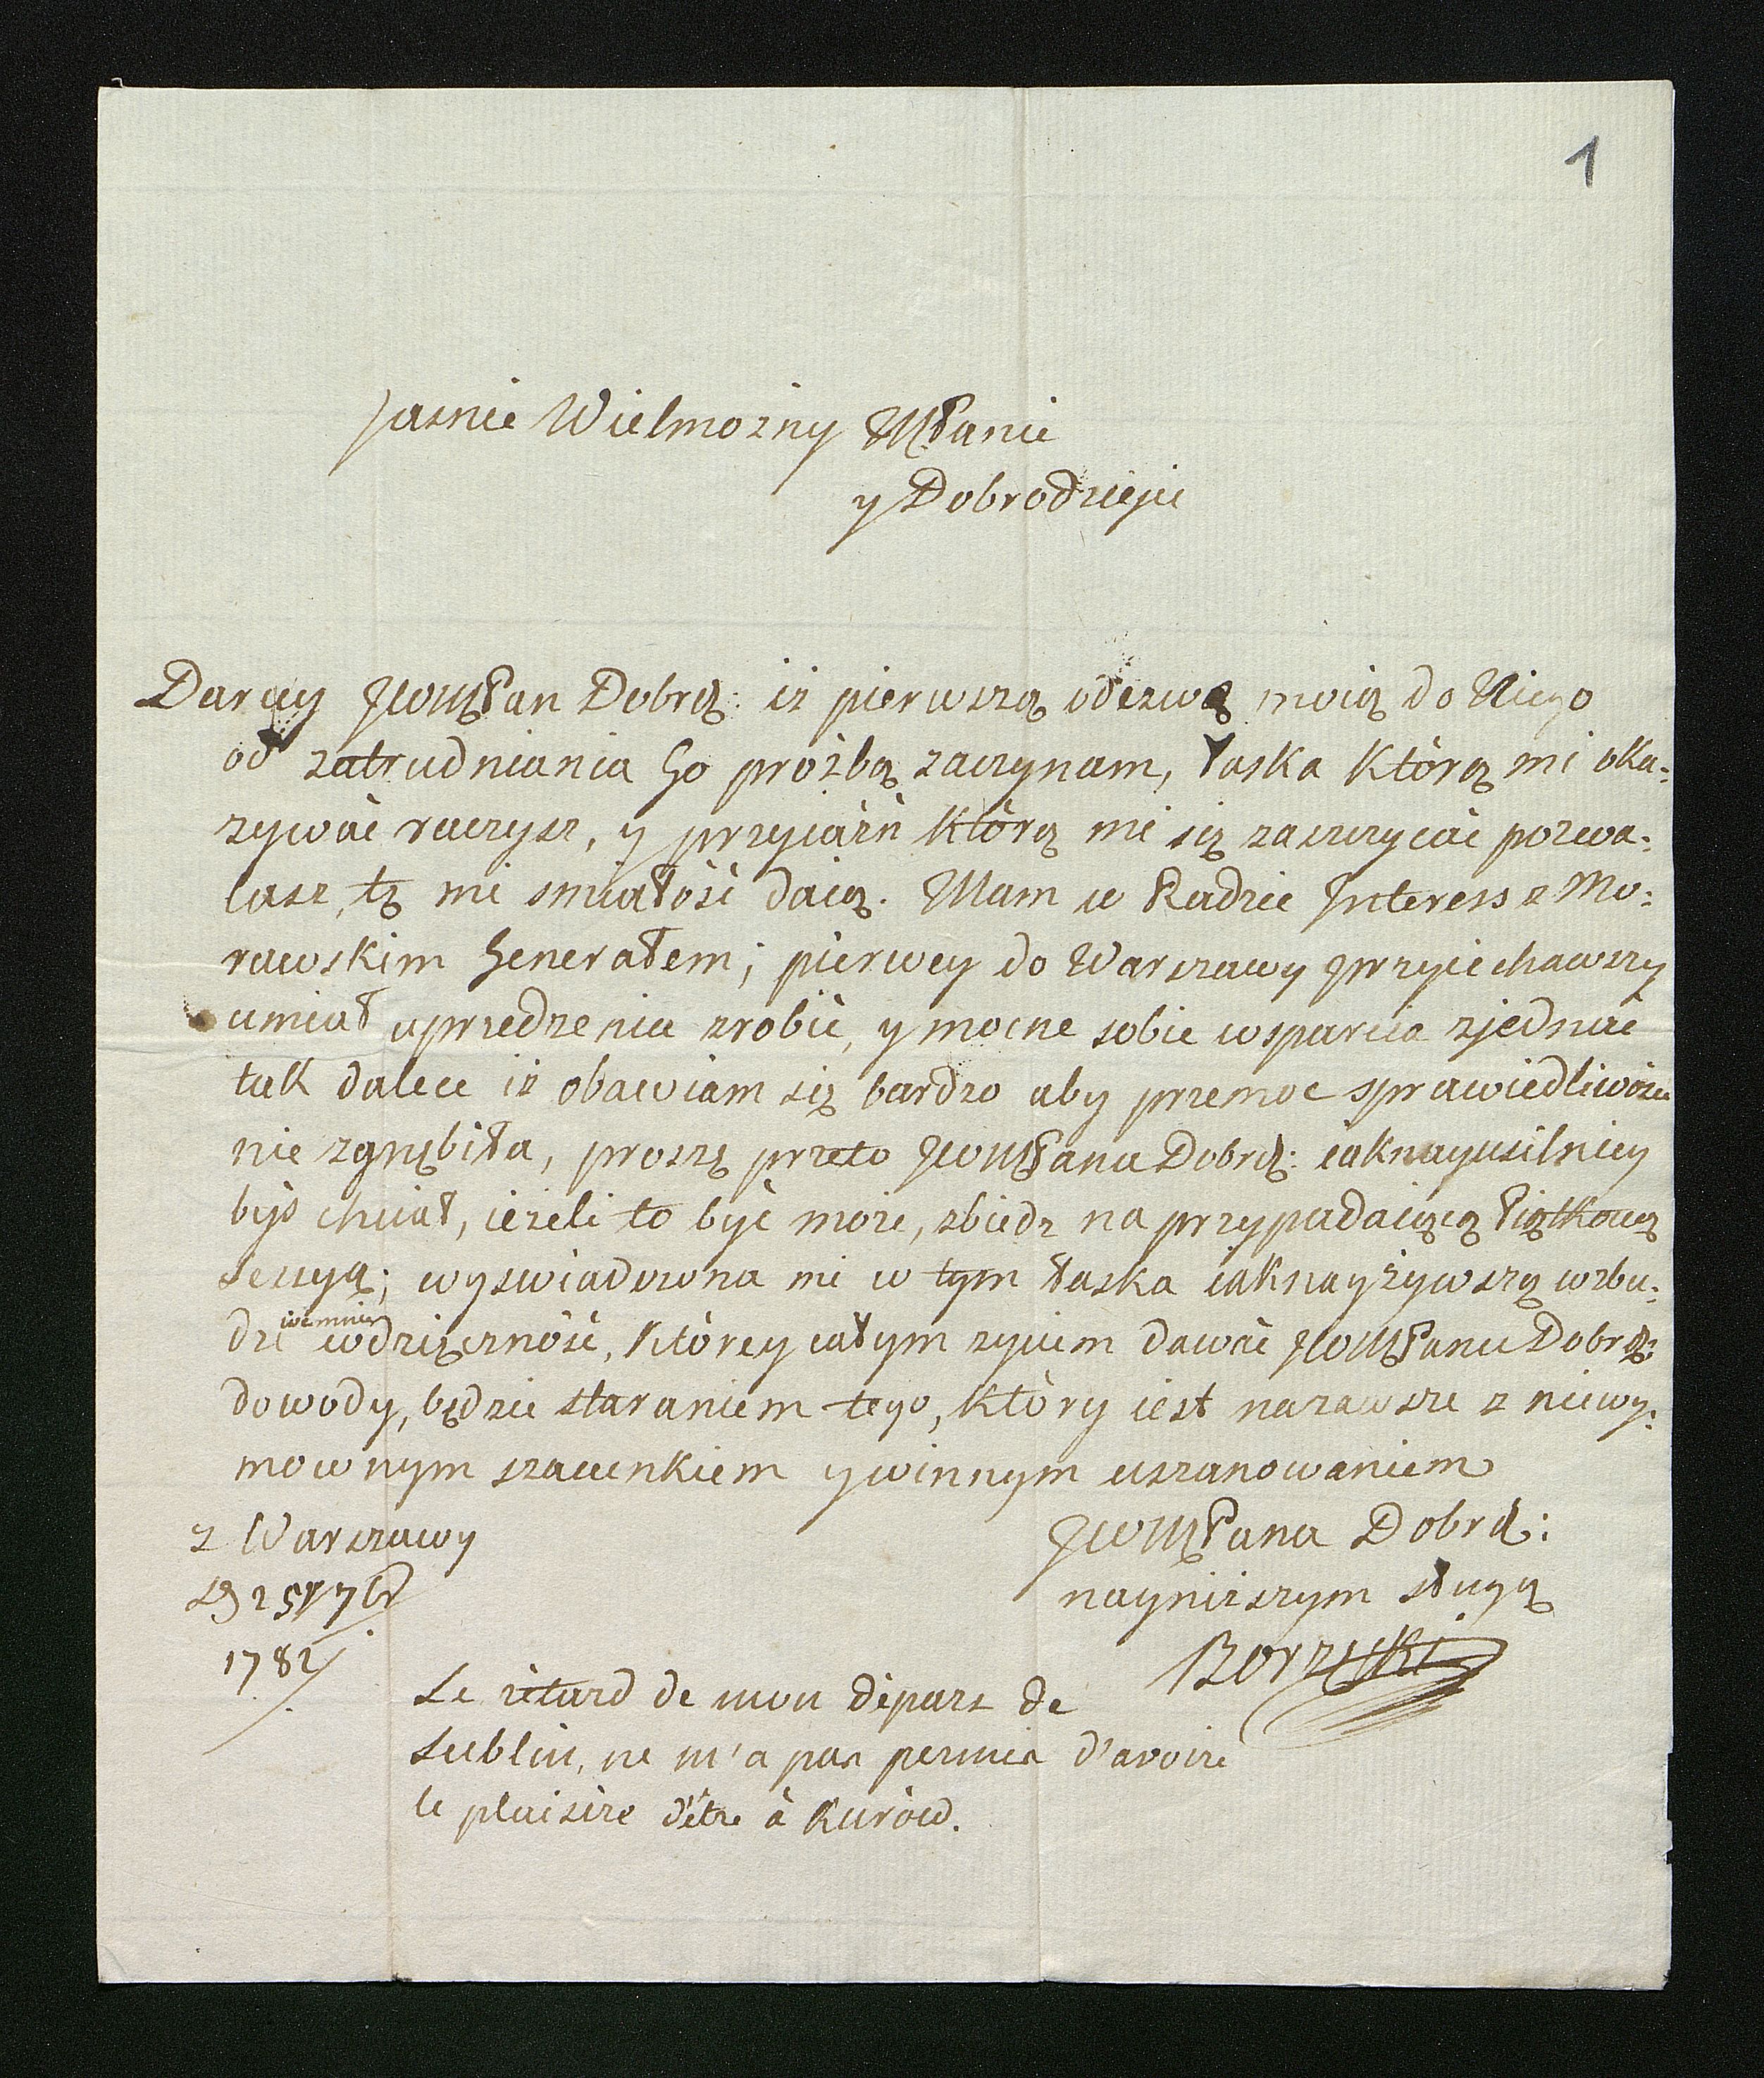 1
Jasnie Wielmożny MPanie
y Dobrodzieju
Daruy JWMPan Dobrdź: iż pierwszą odezwę moią do Niego
od zatrudniania Go prożbą zaczynam, łaska którą mi oka:
zywáć raczysz, y przyiaźń którą mi się zaszczycać pozwa:
lasz, tę mi smiałość daią. Mam w Radzie Interess z Mo:
rawskim Generałem; pierwey do Warszawy przyiechawszy
umiał uprzedzenia zrobić, y mocne sobie wsparcia zjednać
tak dalece iż obawiam się bardzo aby przemoc sprawiedliwośću
nie zgnębiła, proszę przeto JWMPana Dobrdź: iaknayusilniey
byś chciał, ieżeli to być może, zbiedz na przypadaiącą Piątkową
Sessyą; wyswiadczona mi w tym łaska iaknayżywszą wzbu:
dzi we mnie wdzięczność, którey całym zyciem dawać JWMPanu Dobrdź:
dowody, będzie staraniem tego, który iest nazawsze z niewy:
mownym szacunkiem y winnym uszanowaniem
z Warszawy
JWMPana Dobrdź:
D 25 7br
nayniższym sługą
1782
Borzęcki
Le rétard de mon départ de
Lublin, ne m'a pas permis d'avoire
le plaisire d'être à Kurów.